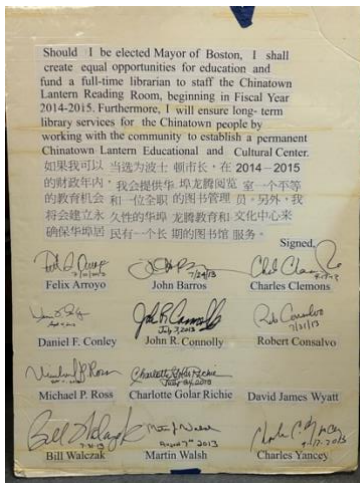 Should I be elected Mayor of Boston, I shall
create equal opportunities for education and
fund a full-time librarian to staff the Chinatown
Lantern Reading Room, beginning in Fiscal Year
2014-2015. Furthermore, I will ensure long- term
library services for the Chinatown people by
working with the community to establish a permanent
Chinatown Lantern Educational and Cultural Center.
如果我可以 当选为波士 顿市长,在 2014－2015
的财政年内,我会提供华 埠龙腾阅览 室一个平等
的教育机会 和一位全职 的图书管理 员。另外,我
将会建立永 久性的华埠 龙腾教育和 文化中心来
确保华埠居 民有一个长 期的图书馆 服务。
Signed,
7/24/13
Felix Arroyo John Barros Charles Clemons
John R Connolly
July 7, 2013
7/31/13
Daniel F. Conley John R. Connolly Robert Consalvo
Michael P Ross Charlotte Golar Richie
Michael P. Ross Charlotte Golar Richie David James Wyatt
Bill Walczak Martin J Walsh Charles C. Yancey
2013
Bill Walczak Martin Walsh Charles Yancey